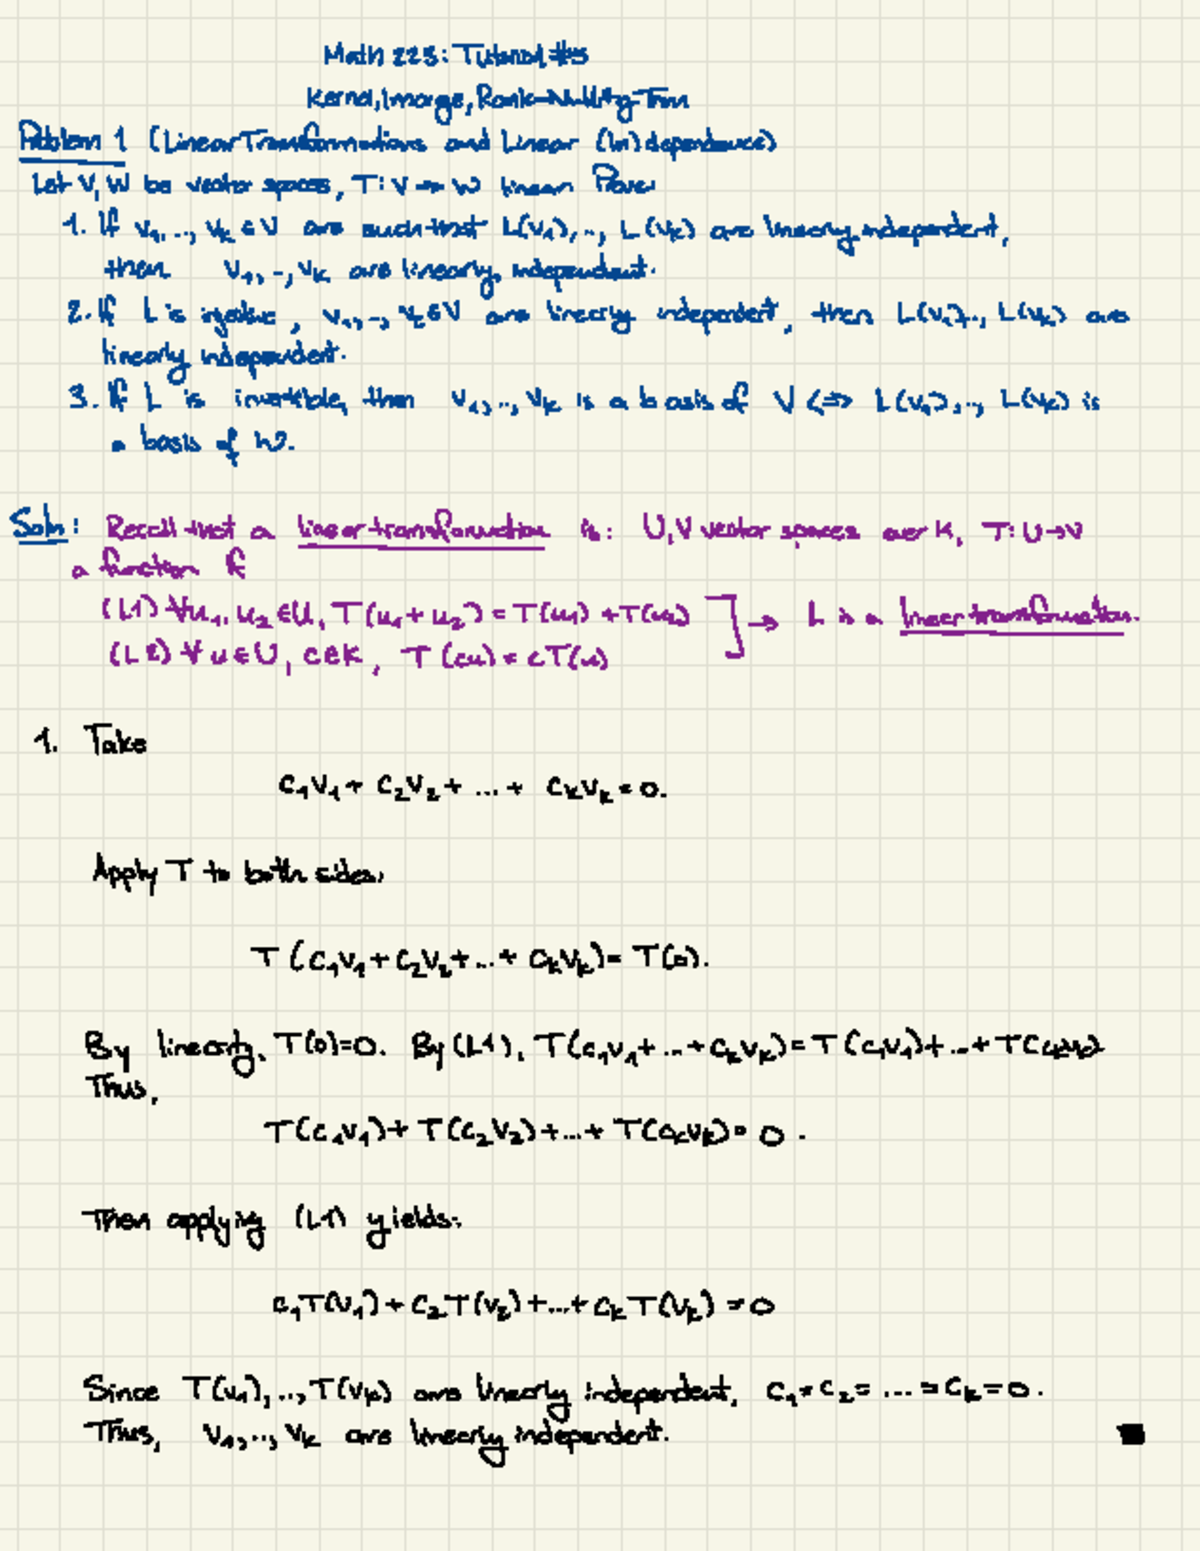 Math 223: Tutorial #5
Kernel, Image, Rank-Nullity Thm
Problem 1 (Linear Transformations and Linear (In)dependence)
Let V, W be vector spaces, T: V → W linear. Prove:
1. If v₁, .., vₖ ∈ V are such that L(v₁), .., L(vₖ) are linearly independent,
then v₁, .., vₖ are linearly independent.
2. If L is injective, v₁, .., vₖ ∈ V are linearly independent, then L(v₁), .., L(vₖ) are
linearly independent.
3. If L is invertible, then v₁, .., vₖ is a basis of V <=> L(v₁), .., L(vₖ) is
a basis of W.
Soln: Recall that a linear transformation is: U, V vector spaces over K, T: U → V
a function if
(L1) ∀u₁, u₂ ∈ U, T(u₁ + u₂) = T(u₁) + T(u₂) ] → L is a linear transformation.
(L2) ∀u ∈ U, c ∈ K, T(cu) = cT(u)
1. Take
c₁v₁ + c₂v₂ + ... + cₖvₖ = 0.
Apply T to both sides:
T(c₁v₁ + c₂v₂ + ... + cₖvₖ) = T(0).
By linearity, T(0)=0. By (L1), T(c₁v₁ + ... + cₖvₖ) = T(c₁v₁) + ... + T(cₖvₖ)
Thus,
T(c₁v₁) + T(c₂v₂) + ... + T(cₖvₖ) = 0.
Then applying (L1) yields:
c₁T(v₁) + c₂T(v₂) + ... + cₖT(vₖ) = 0
Since T(v₁), .., T(vₖ) are linearly independent, c₁ = c₂ = ... = cₖ = 0.
Thus, v₁, .., vₖ are linearly independent. ■